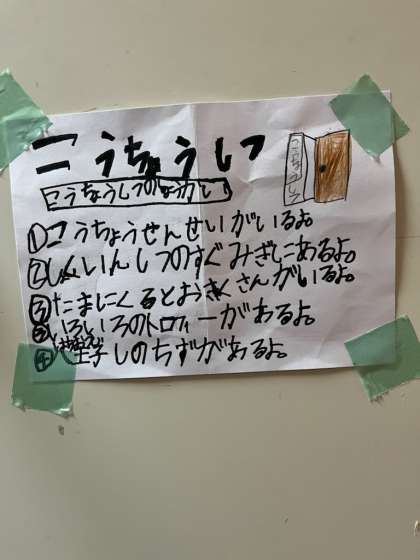 こうちょうしつ
こうちょうしつのしょうかい
こうちょうしつ
①こうちょうせんせいがいるよ。
②しょくいんしつのすぐみぎにあるよ。
③たまにくるとおきゃくさんがいるよ。
いろいろのトロフィーがあるよ。
④しのちずがあるよ。